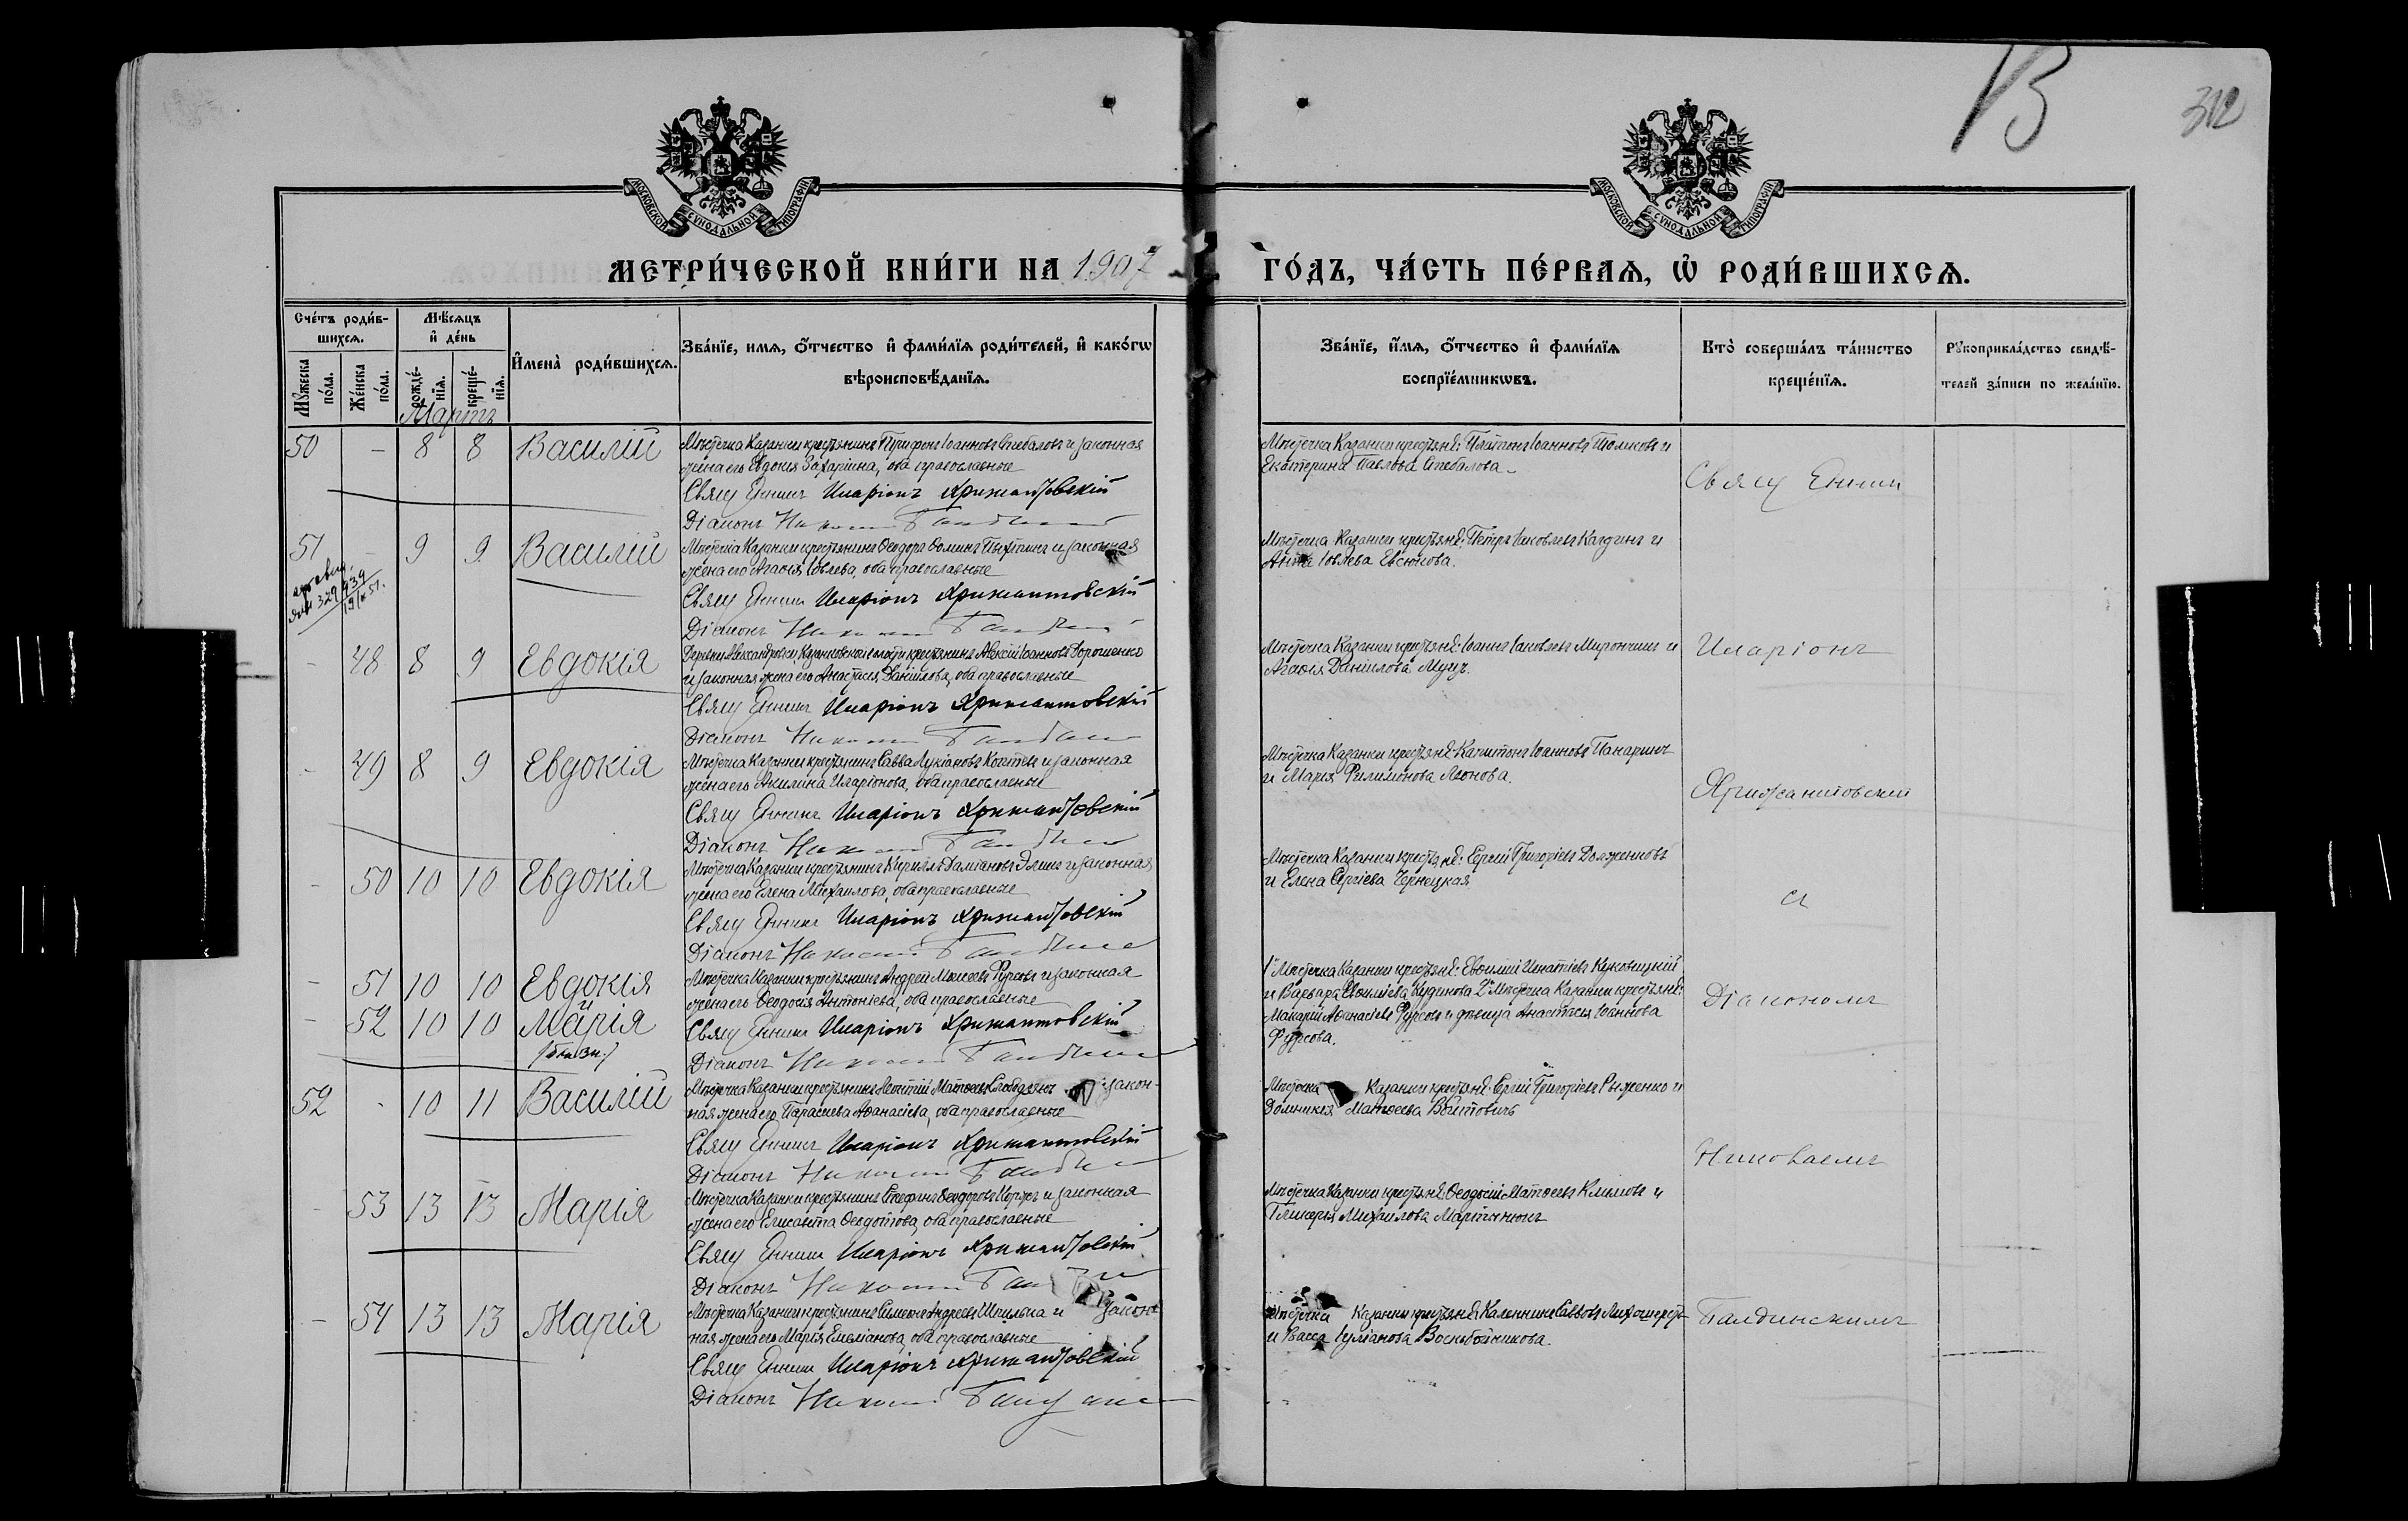 13
312
МОСКОВСКОЙ СѴНОДАЛЬНОЙ ТИПОГРАФІИ
МОСКОВСКОЙ СѴНОДАЛЬНОЙ ТИПОГРАФІИ
МЕТРИ́ЧЕСКОЙ КНИ́ГИ НА 1907 ГО́ДЪ, ЧА́СТЬ ПЕ́РВАѦ, Ѡ҆ РОДИ́ВШИХСѦ.
Сче́тъ роди́в-
шихсѧ.
Мꙋ́жеска по́ла.
Же́нска по́ла.
Мѣ́сѧцъ
и҆ де́нь
рожде́-нїѧ.
креще́-нїѧ.
И҆мена̀ роди́вшихсѧ.
Зва́нїе, имѧ, ѻ҆́тчество и҆ фами́лїѧ роди́телей, и҆ како́гѡ
вѣроисповѣ́данїѧ.
Зва́нїе, и҆́мѧ, ѻ҆́тчество и҆ фами́лїѧ
воспрїе́мникѡвъ.
Кто̀ соверша́лъ та́инство
креще́нїѧ.
Рꙋкоприкла́дство свидѣ́-
телей за́писи по жела́нїю.
Мартъ
50 - 8 8 Василій
Мѣстечка Казанки крестьянинъ Трифонъ Іоанновъ и законная
жена его Евдокія Захаріина, оба православные
Свящ Енникъ Иларіонъ Крижановскій
Діаконъ Николай
Мѣстечка Казанки крестьяне: Платонъ Іоанновъ и
Екатерина Павлова
Свящ Енник
51 - 9 9 Василій
Мѣстечка Казанки крестьянинъ Ѳеодоръ Ѳоминъ и законная
жена его Агаѳія Іовлева, оба православные
Свящ Енник Иларіонъ Крижановскій
Діаконъ Николай
Мѣстечка Казанки крестьяне: Петръ Іаковлевъ и
Анна Іовлева Евсюкова.
- 48 8 9 Евдокія
Деревни Александровки, Казанковской волости крестьянинъ Алексій Іоанновъ Дорошенко
и законная жена его Анастасія Даніилова, оба православные
Свящ Енникъ Иларіонъ Крижановскій
Діаконъ Николай
Мѣстечка Казанки крестьяне: Іоаннъ Іаковлевъ и
Агаѳія Даніилова Муцъ.
Иларіонъ
- 49 8 9 Евдокія
Мѣстечка Казанки крестьянинъ Савва Лукіановъ и законная
жена его Акилина Иларіонова, оба православные
Свящ Енникъ Иларіонъ Крижановскій
Діаконъ Николай
Мѣстечка Казанки крестьяне: Капитонъ Іоанновъ Панаринъ
и Марія Филимонова Леонова.
Крижановскій
- 50 10 10 Евдокія
Мѣстечка Казанки крестьянинъ Кириллъ Даміановъ и законная
жена его Елена Михаилова, оба православные
Свящ Енник Иларіонъ Крижановскій
Діаконъ Николай
Мѣстечка Казанки крестьяне: Сергій Григоріевъ Долженковъ
и Елена Сергіева Чернецкая
съ
- 51 10 10 Евдокія
- 52 10 10 Марія
(близн.)
Мѣстечка Казанки крестьянинъ Андрей Моисеевъ Фурсовъ и законная
жена его Ѳеодосія Антоніева, оба православные
Свящ Енник Иларіонъ Крижановскій
Діаконъ Николай
1) Мѣстечка Казанки крестьяне: Евѳимій Игнатіевъ
и Варвара Евѳиміева Кудинова 2) Мѣстечка Казанки крестьяне:
Макарій Аѳанасіевъ Фурсовъ и дѣвица Анастасія Іоаннова
Фурсова.
Діакономъ
52 - 10 11 Василій
Мѣстечка Казанки крестьянинъ Леонтій Матѳеевъ и закон-
ная жена его Параскева Аѳанасіева, оба православные
Свящ Енникъ Иларіонъ Крижановскій
Діаконъ Николай
Мѣстечка Казанки крестьяне: Сергій Григоріевъ Рыженко и
Домникія Матѳеева Войтовичъ
Николаемъ
- 53 13 13 Марія
Мѣстечка Казанки крестьянинъ Стефанъ Ѳеодоровъ и законная
жена его Елисавета Ѳеодотова, оба православные
Свящ Енник Иларіонъ Крижановскій
Діаконъ Николай
Мѣстечка Казанки крестьяне: Ѳеодосій Матѳеевъ Климовъ и
Гликерія Михаилова Мартынюкъ
- 54 13 13 Марія
Мѣстечка Казанки крестьянинъ Симеонъ Андреевъ и закон
ная жена его Марія Емеліанова, оба православные
Свящ Енник Иларіонъ Крижановскій
Діаконъ Николай
Мѣстечка Казанки крестьяне: Каленникъ Савовъ
и Васса Іуліанова Воскобойникова.